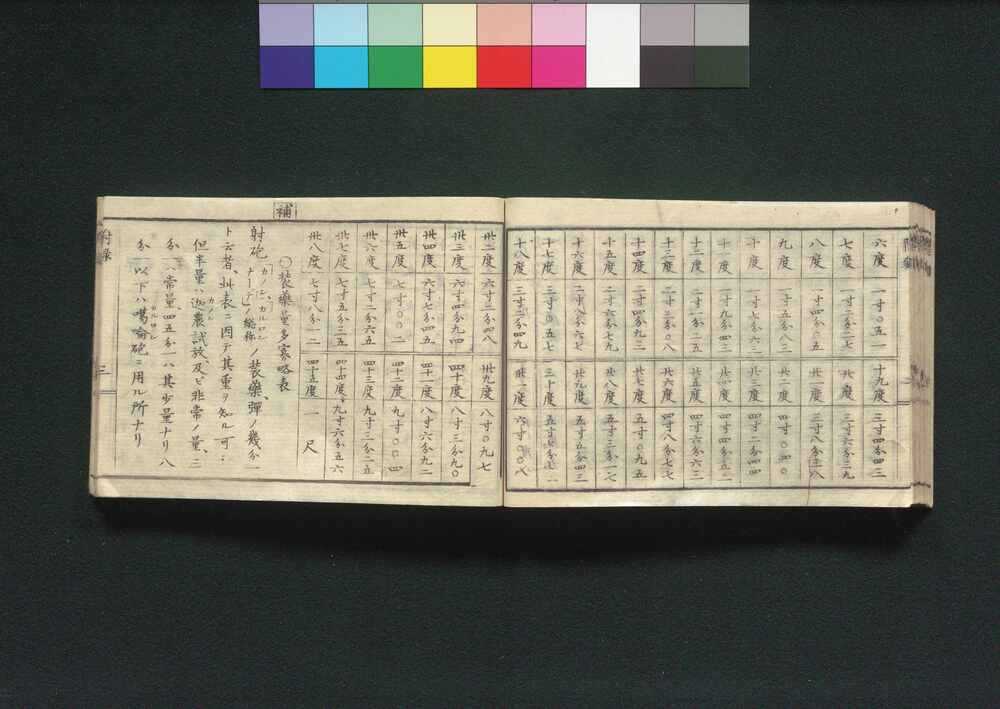 附錄
六度 一寸〇五一
十九度 三寸四分四三
七度 一寸二分二七
廿度 三寸六分三九
八度 一寸四分〇五
廿一度 三寸八分三八
九度 一寸五分八三
廿二度 四寸〇四〇
十度 一寸七分六三
廿三度 四寸二分四四
十一度 一寸九分四三
廿四度 四寸四分五二
十二度 二寸一分二五
廿五度 四寸六分六三
十三度 二寸三分〇八
廿六度 四寸八分七七
十四度 二寸四分九三
廿七度 五寸〇九五
十五度 二寸六分七九
廿八度 五寸三分一七
十六度 二寸八分六七
廿九度 五寸五分四三
十七度 三寸〇五七
三十度 五寸七分七一
十八度 三寸二分四九
卅一度 六寸〇〇八
卅二度 六寸二分四八
卅九度 八寸〇九七
卅三度 六寸四分九四
四十度 八寸三分九〇
卅四度 六寸七分四五
四十一度 八寸六分九二
卅五度 七寸〇〇二
四十二度 九寸〇〇四
卅六度 七寸二分六五
四十三度 九寸三分二五
卅七度 七寸五分三五
四十四度 九寸六分五六
卅八度 七寸八分一二
四十五度 一尺
補
〇装藥量多寡略表
射砲カノン、カルロンナーデノ総称ノ装藥、彈ノ幾分一
ト云者、此表ニ因テ其重ヲ知ル可シ
但半量ハ迦農試放及ビ非常ノ量、三
分一ハ常量四五分一ハ其少量ナリ八
分一以下ハ噶侖砲ニ用ル所ナリ
附錄
三